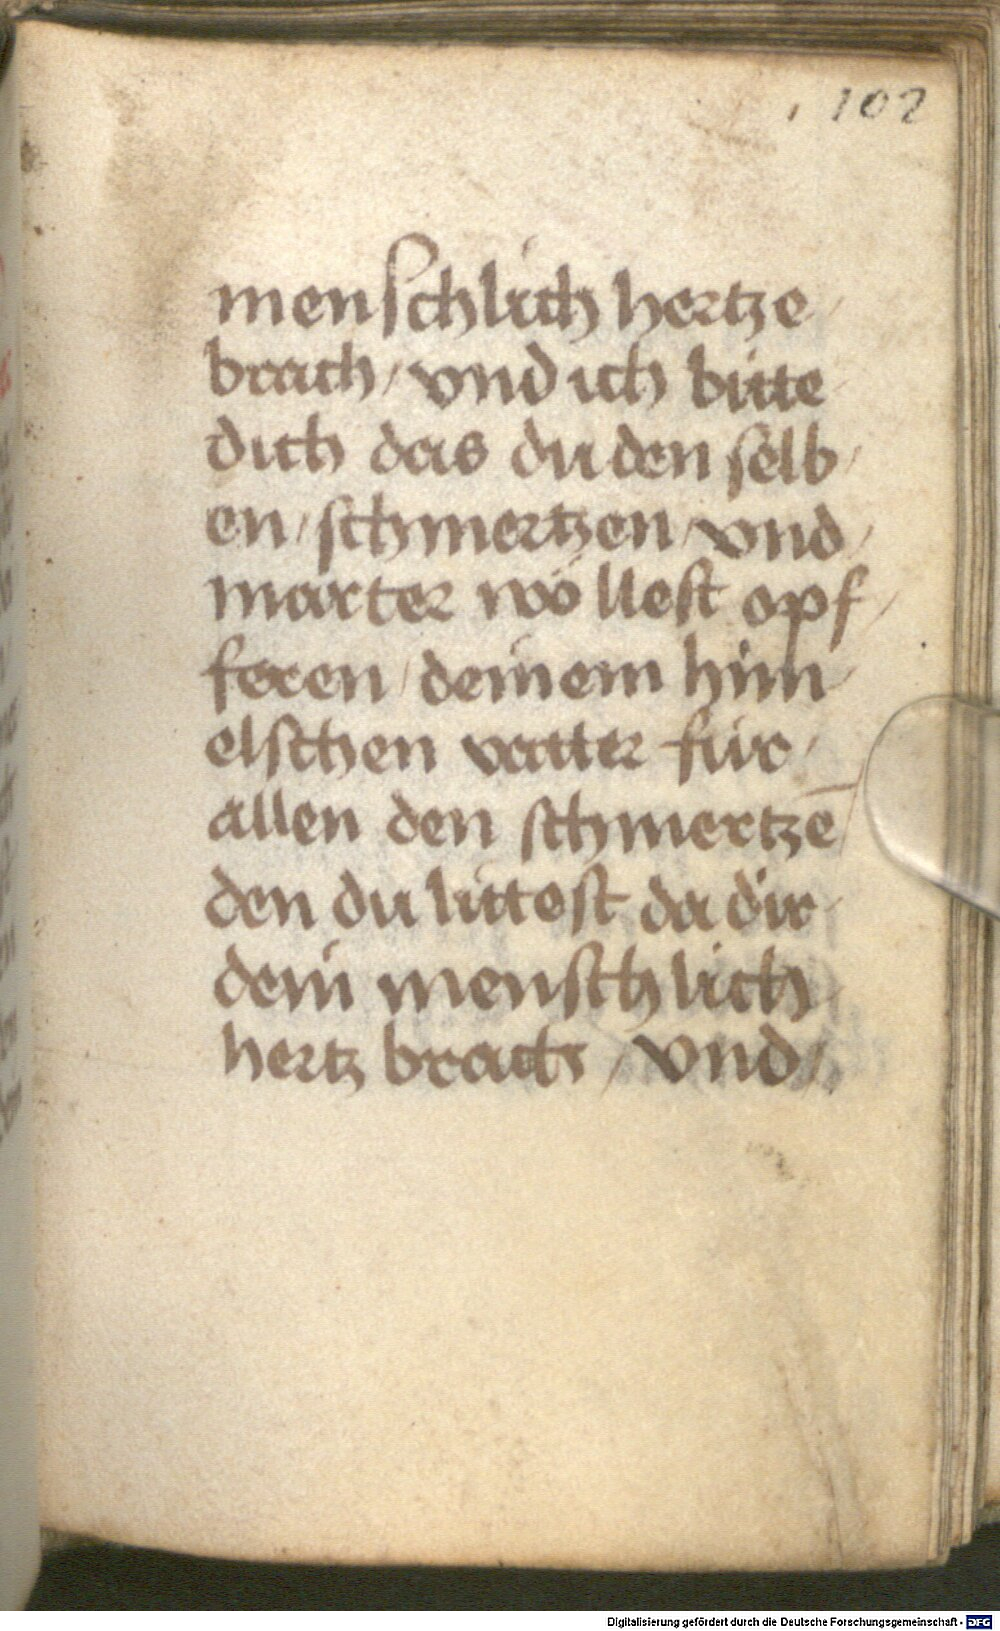 102
menſchlich hertze
brach / vnd ich bitte
dich das du den ſelb
en / ſchmertzen / vnd
marter wöllest opf
feren / deinem him
elſchen vatter für
allen den ſchmertzē
den du littest da dir
dein menſchlich
hertz brach / vnd /
Digitalisierung gefördert durch die Deutsche Forschungsgemeinschaft - DFG